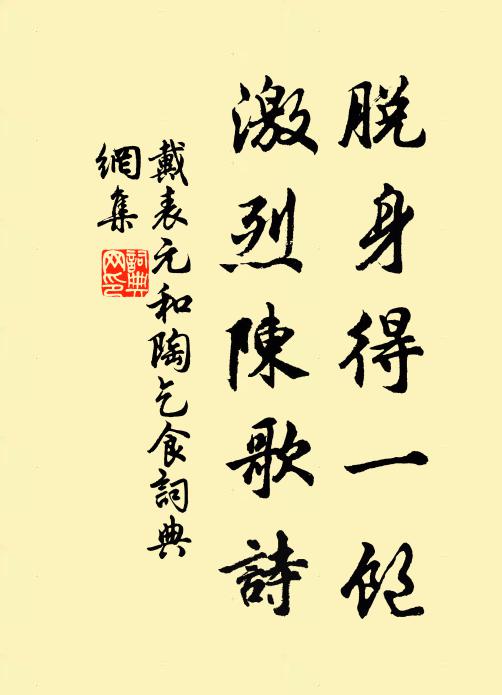 脫身得一飽
激烈陳歌詩
戴表元和陶乞食詞典
網集
詞典
网印